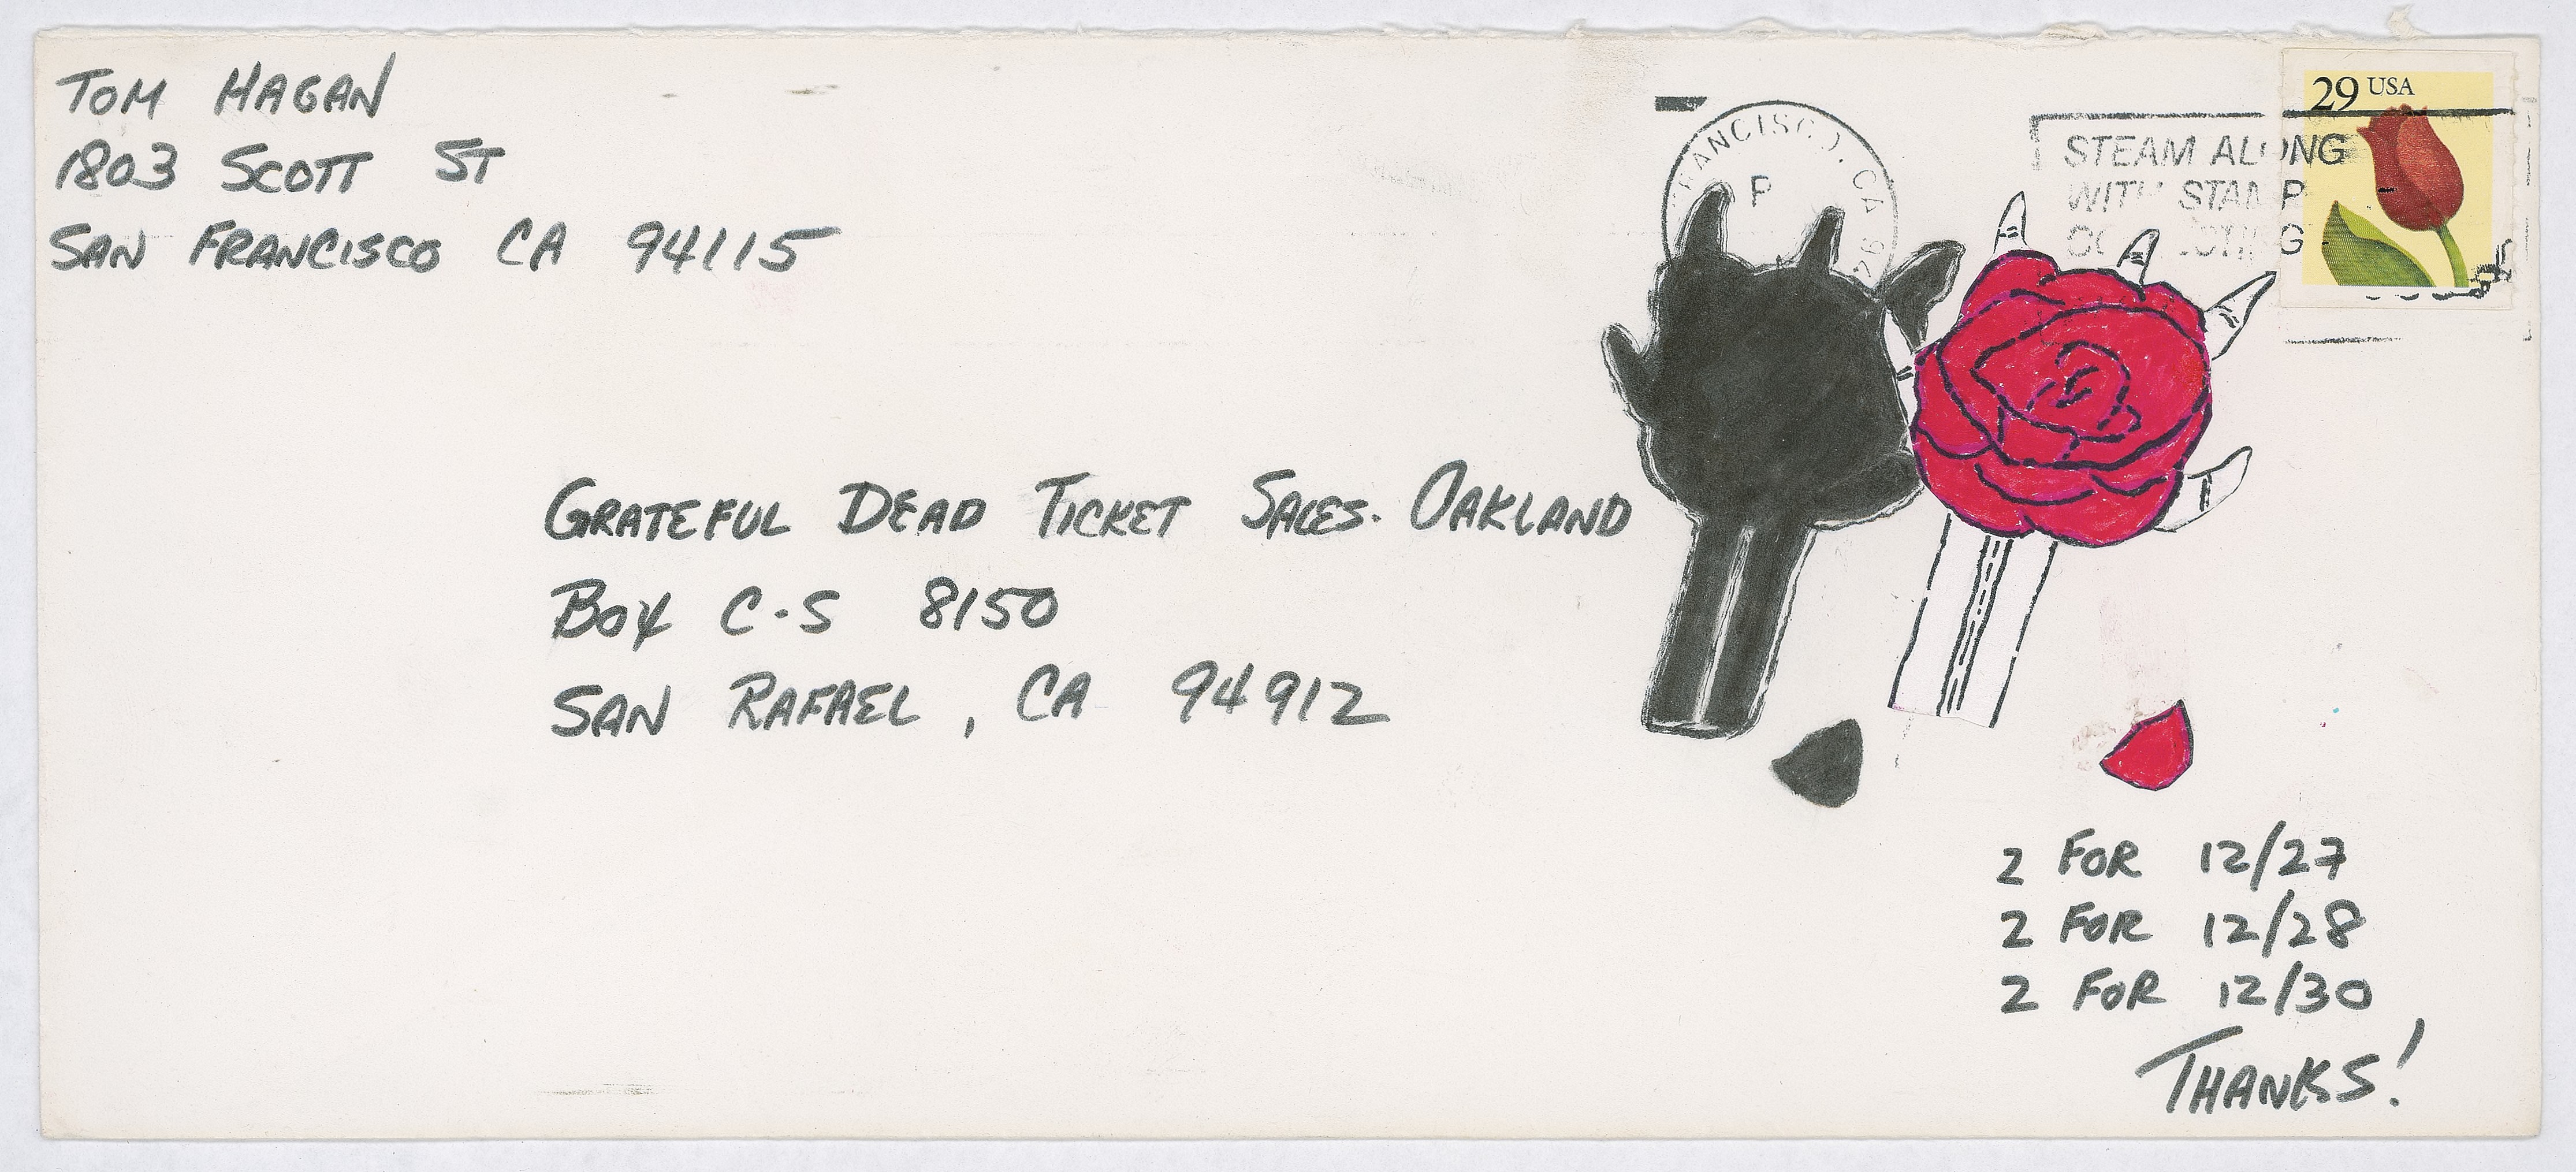 TOM HAGAN
1803 SCOTT ST
SAN FRANCISCO CA 94115
29 USA
FRANCISCO, CA
P
STEAM ALONG
WITH STAMP
GRATEFUL DEAD TICKET SALES. OAKLAND
BOX C-S 8150
SAN RAFAEL, CA 94912
2 FOR 12/27
2 FOR 12/28
2 FOR 12/30
THANKS!